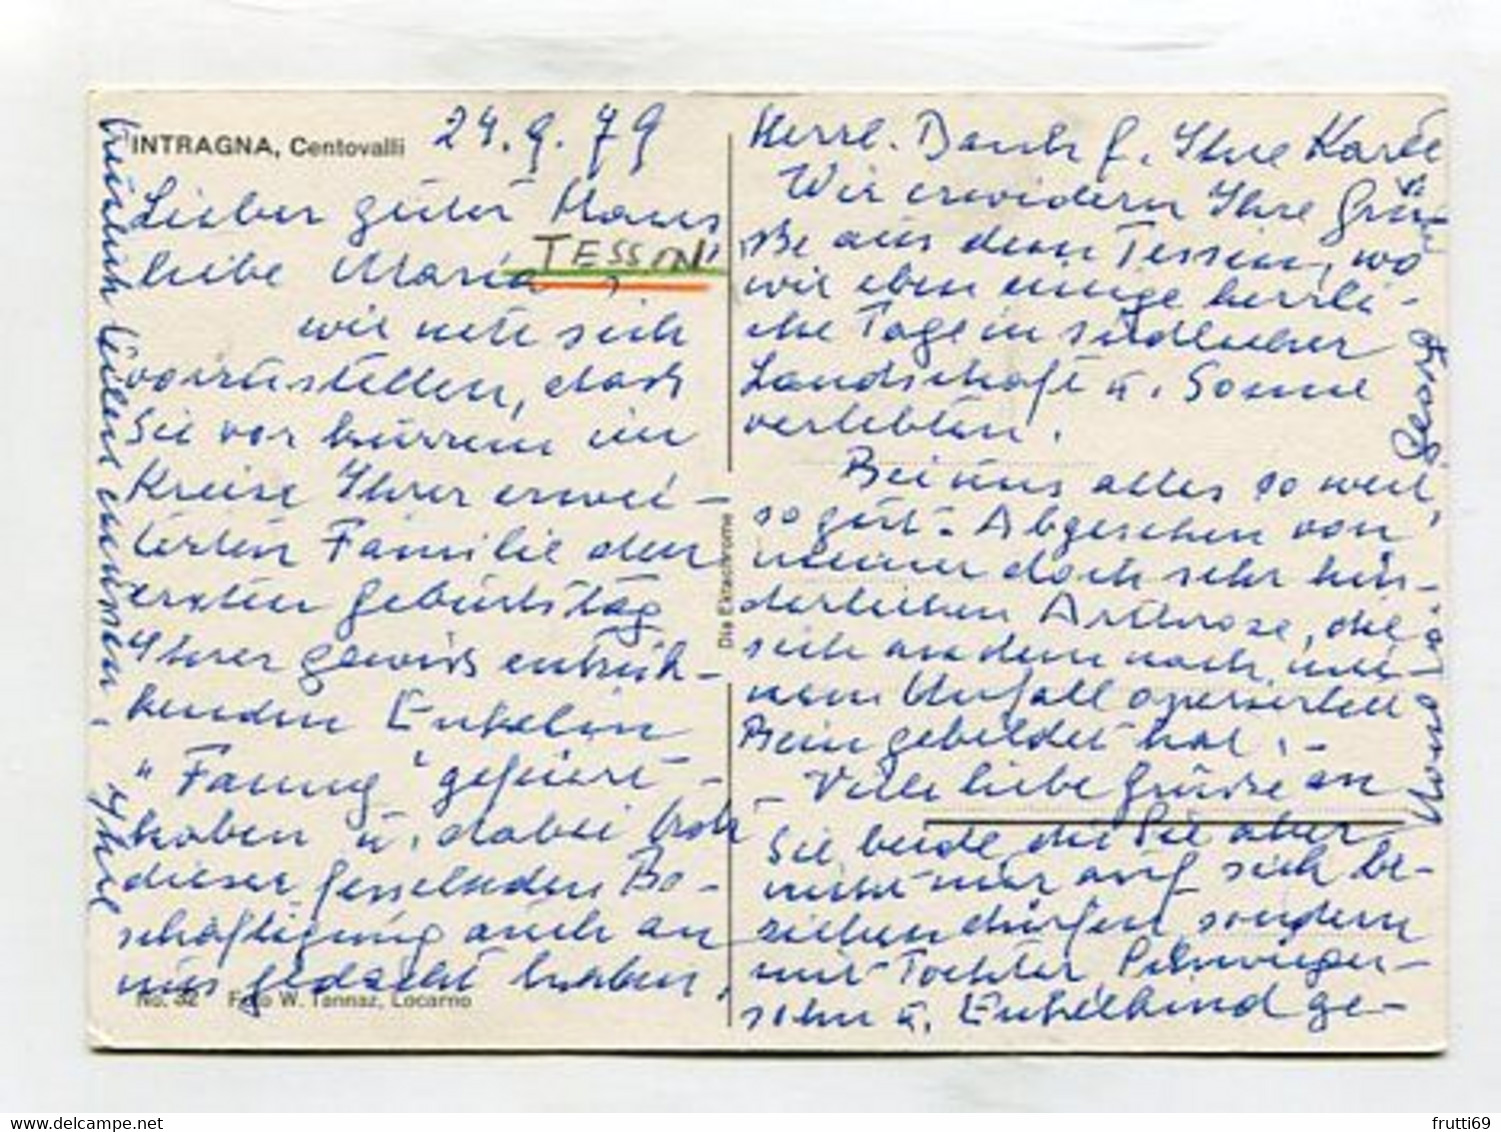 INTRAGNA, Centovalli
24.9.79
Lieber guter Hans,
liebe Maria,
TESSIN
wir nete sich
vorzustellen, dass
Sie vor kurzem im
Kreise Ihrer erwei-
terten Familie den
ersten Geburtstag
Ihrer gewiss entzük-
kenden Enkelin
"Fanny" gefeiert
haben u. dabei trotz
dieser fesselnden Be-
schäftigung auch an
uns gedacht haben.
No. 32 Foto W. Tannaz, Locarno
Dia Ektachrome
Herzl. Dank f. Ihre Karte
Wir erwidern Ihre Grü-
sse aus dem Tessin, wo
wir eben einige herrli-
che Tage in südlicher
Landschaft u. Sonne
verlebten.
Bei uns alles so weit,
so gut. Abgesehen von
meiner doch sehr hin-
derlichen Arthrose, die
sich an dem nach mei-
nem Unfall operierten
Bein gebildet hat. -
Viele liebe Grüsse an
Sie beide die Sie aber
nicht nur auf sich be-
ziehen dürfen, sondern
mit Tochter, Schwieger-
sohn u. Enkelkind ge-
teilen müssen.
Ihre
frutti69
delcampe.net